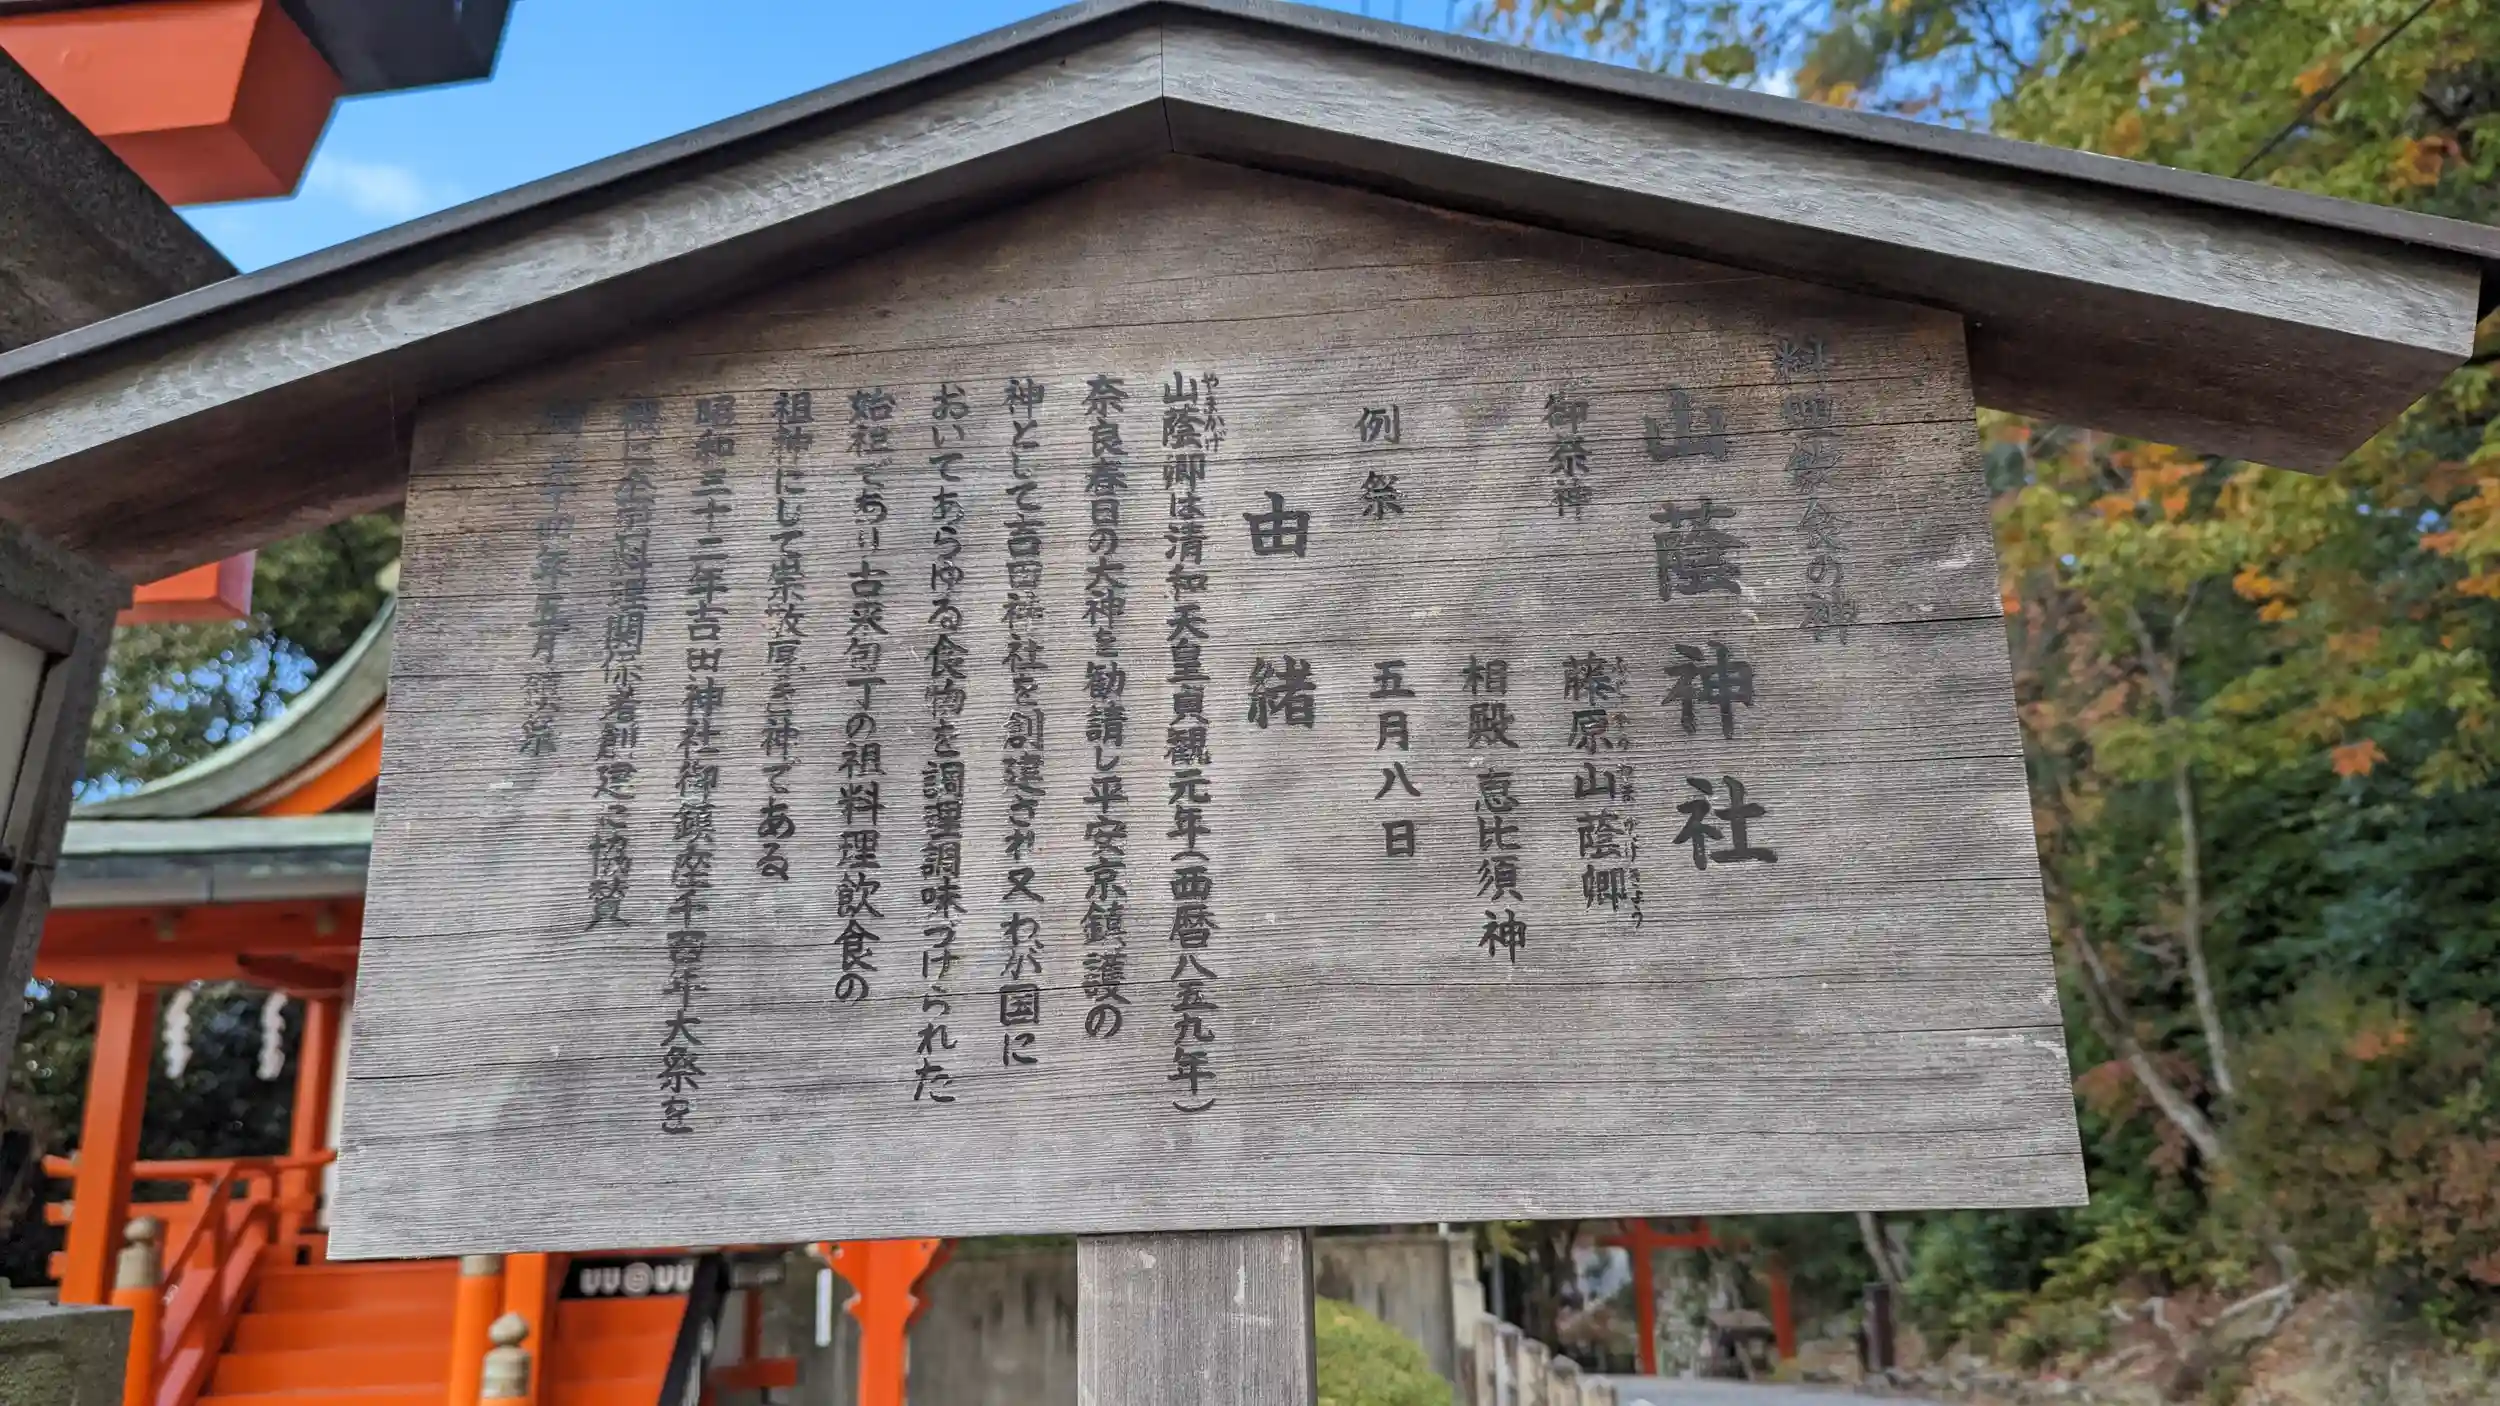 料理飲食の神
山蔭神社
御祭神
藤原山蔭卿
相殿 恵比須神
例祭
五月八日
由緒
やまかげ
山蔭卿は清和天皇貞観元年(西暦八五九年)
奈良春日の大神を勧請し平安京鎮護の
神として吉田神社を創建され又わが国に
おいてあらゆる食物を調理調味づけられた
始祖であり古来包丁の祖料理飲食の
祖神にして崇敬厚き神である
昭和三十二年吉田神社御鎮座千百年大祭を
全国料理関係者創建に協賛
年五月